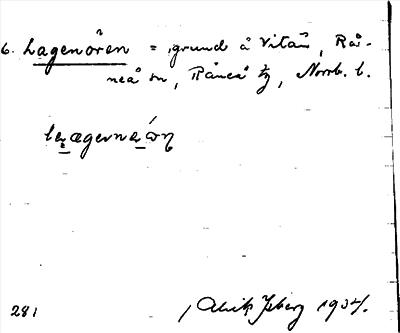 6. Lagenören = grund å Vitån, Rå-
neå sn, Råneå tg, Norrb. l.
281
Alvik Isberg 1934.